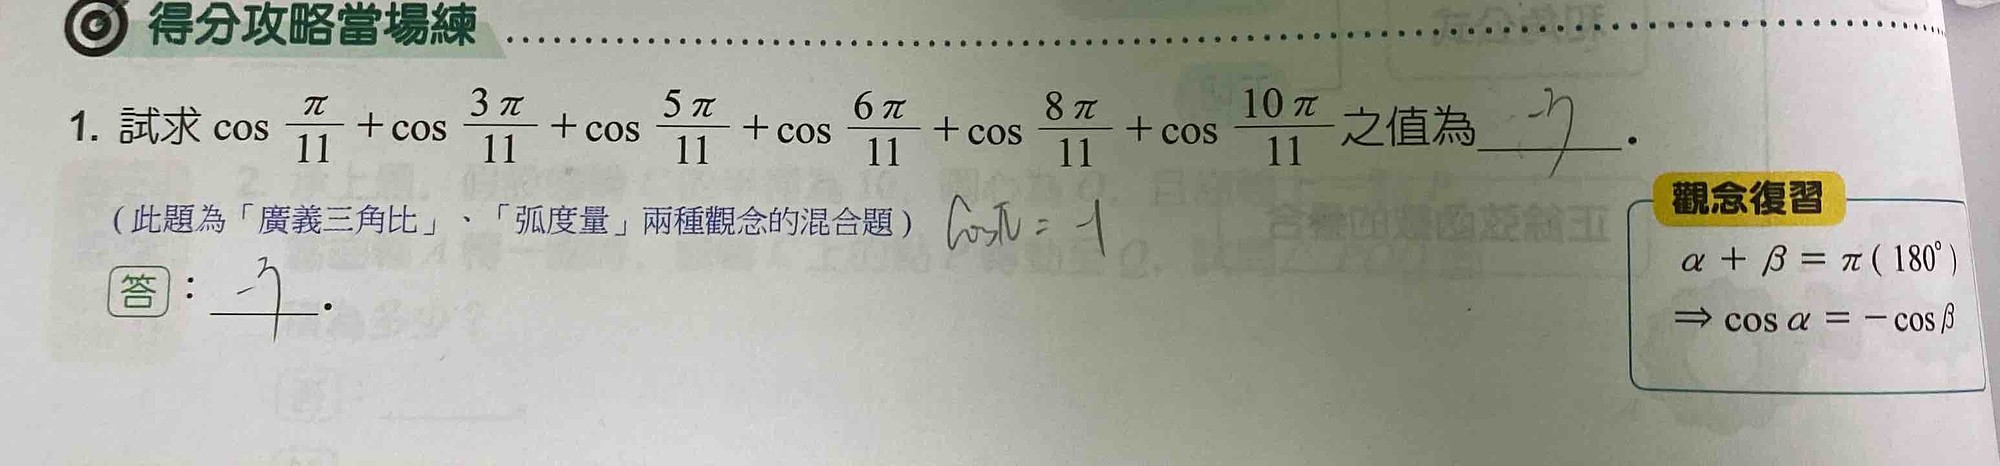 得分攻略當場練
1. 試求 cos π/11 + cos 3π/11 + cos 5π/11 + cos 6π/11 + cos 8π/11 + cos 10π/11 之值為 -3 .
(此題為「廣義三角比」、「弧度量」兩種觀念的混合題) Cosπ = -1
答 : -3 .
觀念復習
α + β = π ( 180° )
⇒ cos α = − cos β